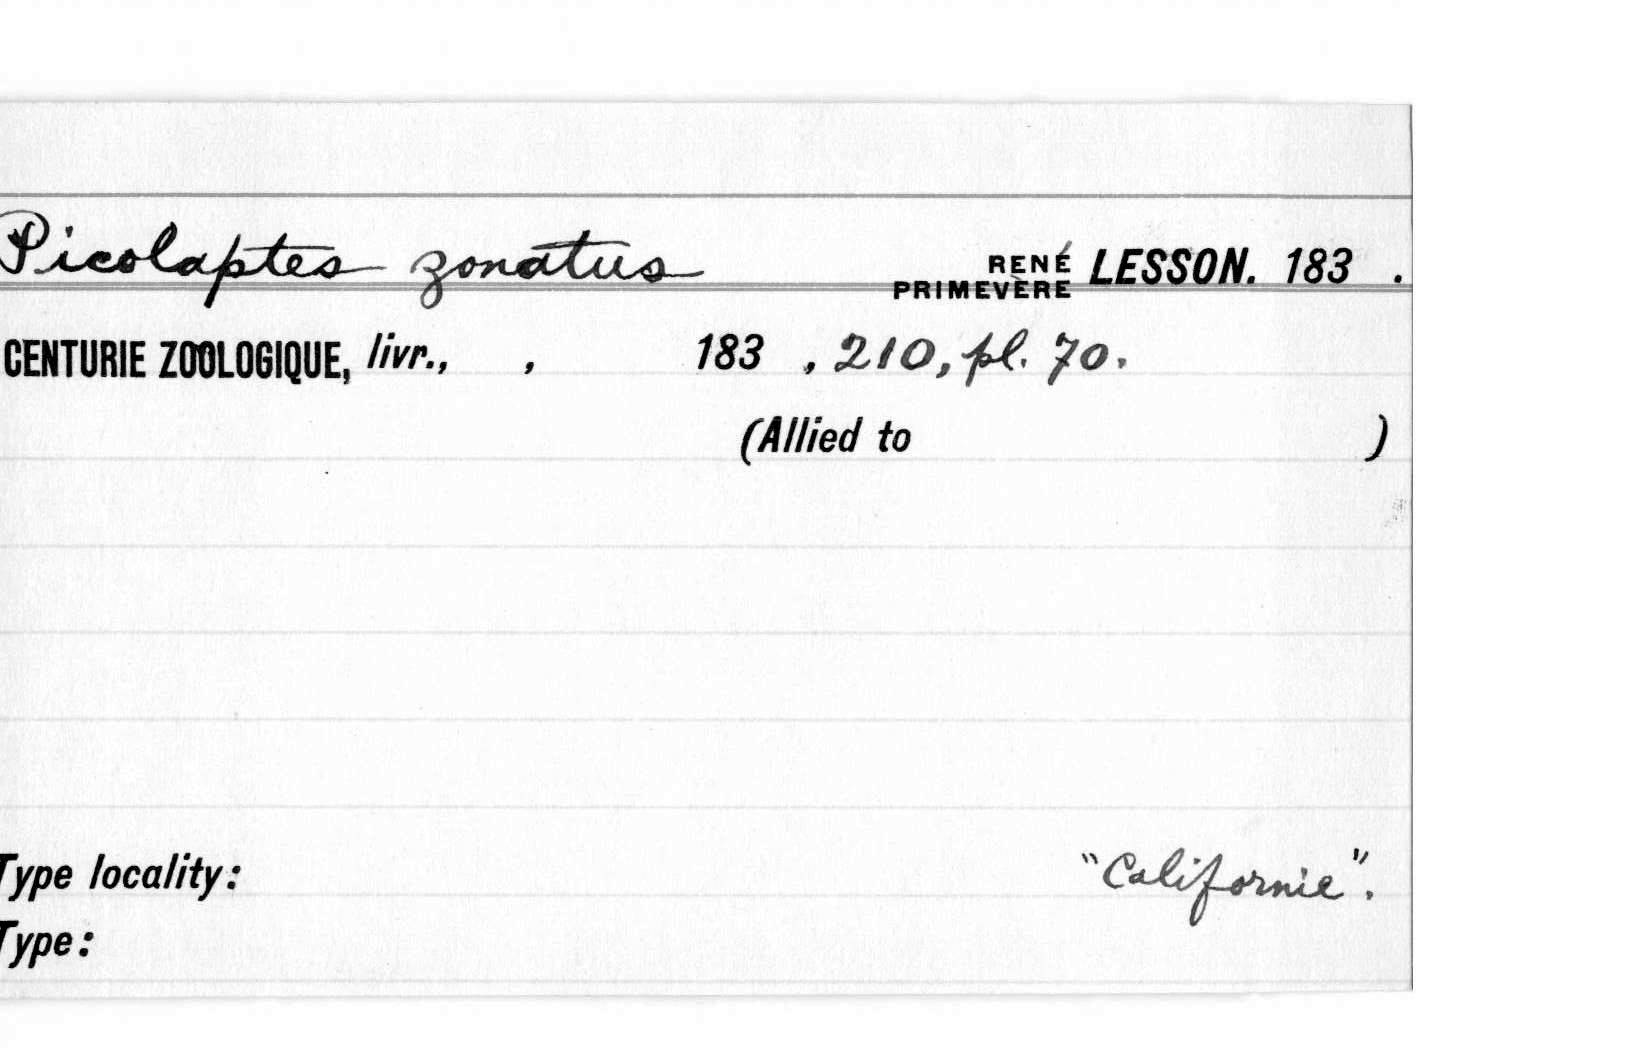 Picolaptes zonatus RENÉ PRIMEVÈRE LESSON. 183 .
CENTURIE ZOOLOGIQUE, livr., , 183 , 210, pl. 70.
(Allied to )
Type locality: "Californie".
Type: